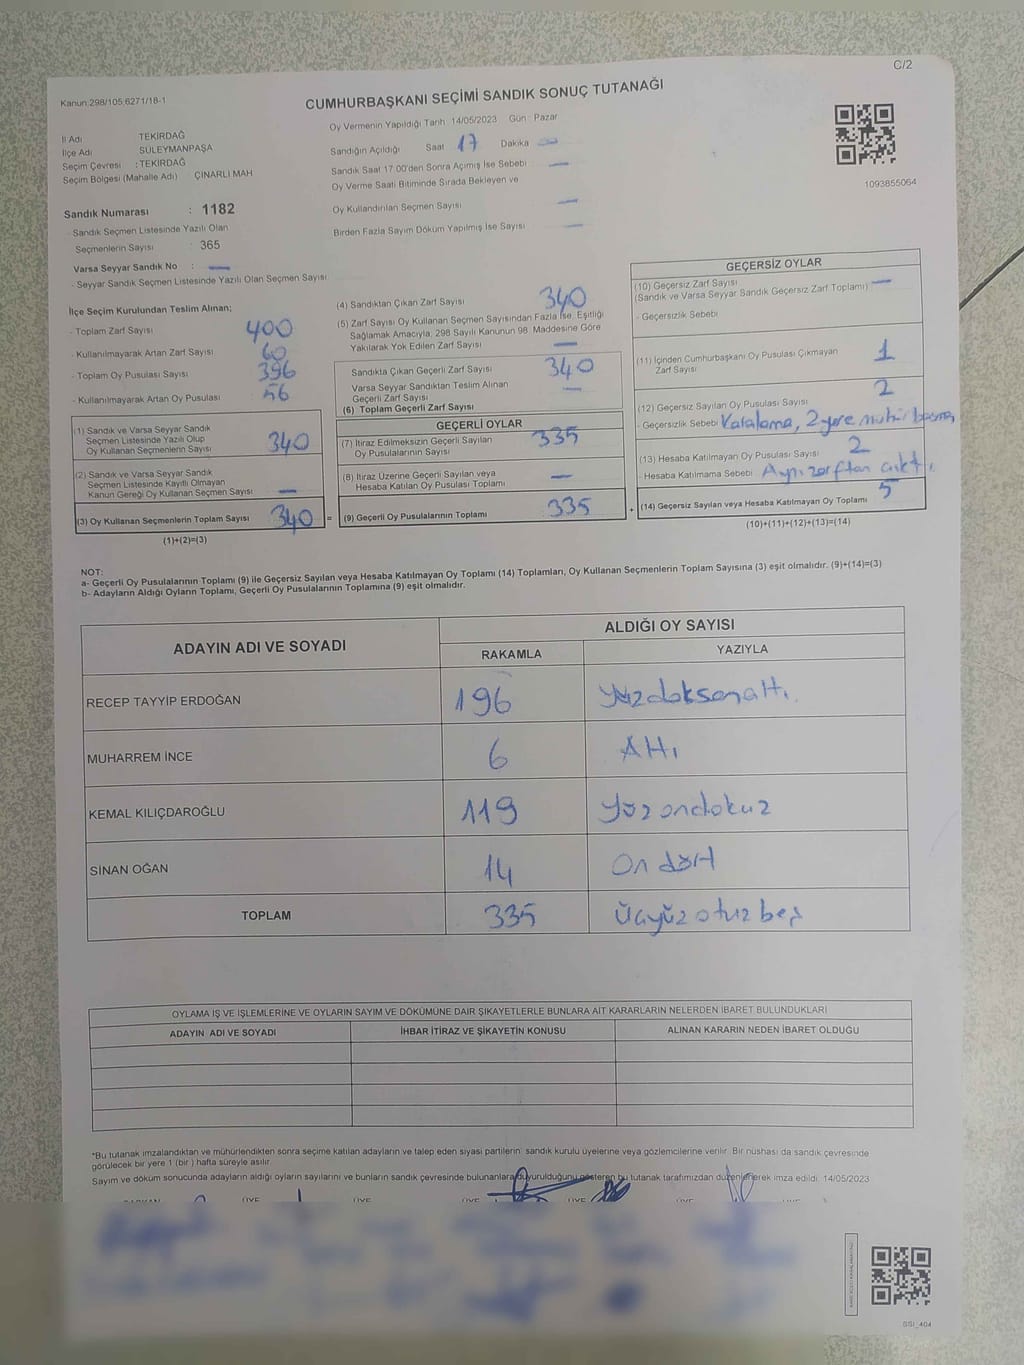 C/2
Kanun.298/105,6271/18-1
CUMHURBAŞKANI SEÇİMİ SANDIK SONUÇ TUTANAĞI
İl Adı TEKİRDAĞ
İlçe Adı SÜLEYMANPAŞA
Seçim Çevresi : TEKİRDAĞ
Seçim Bölgesi (Mahalle Adı) ÇINARLI MAH
Sandık Numarası : 1182
- Sandık Seçmen Listesinde Yazılı Olan
Seçmenlerin Sayısı : 365
Varsa Seyyar Sandık No : —
- Seyyar Sandık Seçmen Listesinde Yazılı Olan Seçmen Sayısı
Oy Vermenin Yapıldığı Tarih: 14/05/2023 Gün : Pazar
Sandığın Açıldığı Saat 17 Dakika —
Sandık Saat 17.00'den Sonra Açımış İse Sebebi —
Oy Verme Saati Bitiminde Sırada Bekleyen ve
Oy Kullandırılan Seçmen Sayısı —
Birden Fazla Sayım Döküm Yapılmış İse Sayısı —
1093855064
İlçe Seçim Kurulundan Teslim Alınan;
- Toplam Zarf Sayısı 400
- Kullanılmayarak Artan Zarf Sayısı 60
- Toplam Oy Pusulası Sayısı 396
- Kullanılmayarak Artan Oy Pusulası 56
(1) Sandık ve Varsa Seyyar Sandık
Seçmen Listesinde Yazılı Olup
Oy Kullanan Seçmenlerin Sayısı 340
(2) Sandık ve Varsa Seyyar Sandık
Seçmen Listesinde Kayıtlı Olmayan
Kanun Gereği Oy Kullanan Seçmen Sayısı —
(3) Oy Kullanan Seçmenlerin Toplam Sayısı 340 =
(1)+(2)=(3)
(4) Sandıktan Çıkan Zarf Sayısı 340
(5) Zarf Sayısı Oy Kullanan Seçmen Sayısından Fazla İse, Eşitliği
Sağlamak Amacıyla; 298 Sayılı Kanunun 98. Maddesine Göre
Yakılarak Yok Edilen Zarf Sayısı —
Sandıkta Çıkan Geçerli Zarf Sayısı 340
Varsa Seyyar Sandıktan Teslim Alınan
Geçerli Zarf Sayısı —
(6) Toplam Geçerli Zarf Sayısı
GEÇERLİ OYLAR
(7) İtiraz Edilmeksizin Geçerli Sayılan
Oy Pusulasının Sayısı 335
(8) İtiraz Üzerine Geçerli Sayılan veya
Hesaba Katılan Oy Pusulası Toplamı —
(9) Geçerli Oy Pusulalarının Toplamı 335 +
GEÇERSİZ OYLAR
(10) Geçersiz Zarf Sayısı —
(Sandık ve Varsa Seyyar Sandık Geçersiz Zarf Toplamı)
- Geçersizlik Sebebi
(11) İçinden Cumhurbaşkanı Oy Pusulası Çıkmayan
Zarf Sayısı 1
(12) Geçersiz Sayılan Oy Pusulası Sayısı 2
- Geçersizlik Sebebi Karalama, 2 yere mühür basma,
(13) Hesaba Katılmayan Oy Pusulası Sayısı 2
- Hesaba Katılmama Sebebi Aynı zarftan çıktı
(14) Geçersiz Sayılan veya Hesaba Katılmayan Oy Toplamı 5
(10)+(11)+(12)+(13)=(14)
NOT:
a- Geçerli Oy Pusulalarının Toplamı (9) ile Geçersiz Sayılan veya Hesaba Katılmayan Oy Toplamı (14) Toplamları, Oy Kullanan Seçmenlerin Toplam Sayısına (3) eşit olmalıdır. (9)+(14)=(3)
b- Adayların Aldığı Oyların Toplamı, Geçerli Oy Pusulalarının Toplamına (9) eşit olmalıdır.
ADAYIN ADI VE SOYADI ALDIĞI OY SAYISI
RAKAMLA YAZIYLA
RECEP TAYYİP ERDOĞAN 196 Yüzdoksanaltı.
MUHARREM İNCE 6 Altı
KEMAL KILIÇDAROĞLU 119 Yüzondokuz
SİNAN OĞAN 14 On dört
TOPLAM 335 Üçyüzotuzbeş
OYLAMA İŞ VE İŞLEMLERİNE VE OYLARIN SAYIM VE DÖKÜMÜNE DAİR ŞİKAYETLERLE BUNLARA AİT KARARLARIN NELERDEN İBARET BULUNDUKLARI
ADAYIN ADI VE SOYADI İHBAR İTİRAZ VE ŞİKAYETİN KONUSU ALINAN KARARIN NEDEN İBARET OLDUĞU
*Bu tutanak imzalandıktan ve mühürlendikten sonra seçime katılan adayların ve talep eden siyasi partilerin sandık kurulu üyelerine veya gözlemcilerine verilir. Bir nüshası da sandık çevresinde
görülecek bir yere 1 (bir) hafta süreyle asılır.
Sayım ve döküm sonucunda adayların aldığı oyların sayılarını ve bunların sandık çevresinde bulunanlara duyurulduğunu gösteren bu tutanak tarafımızdan düzenlenerek imza edildi. 14/05/2023
BAŞKAN ÜYE ÜYE ÜYE ÜYE ÜYE
SSI_404